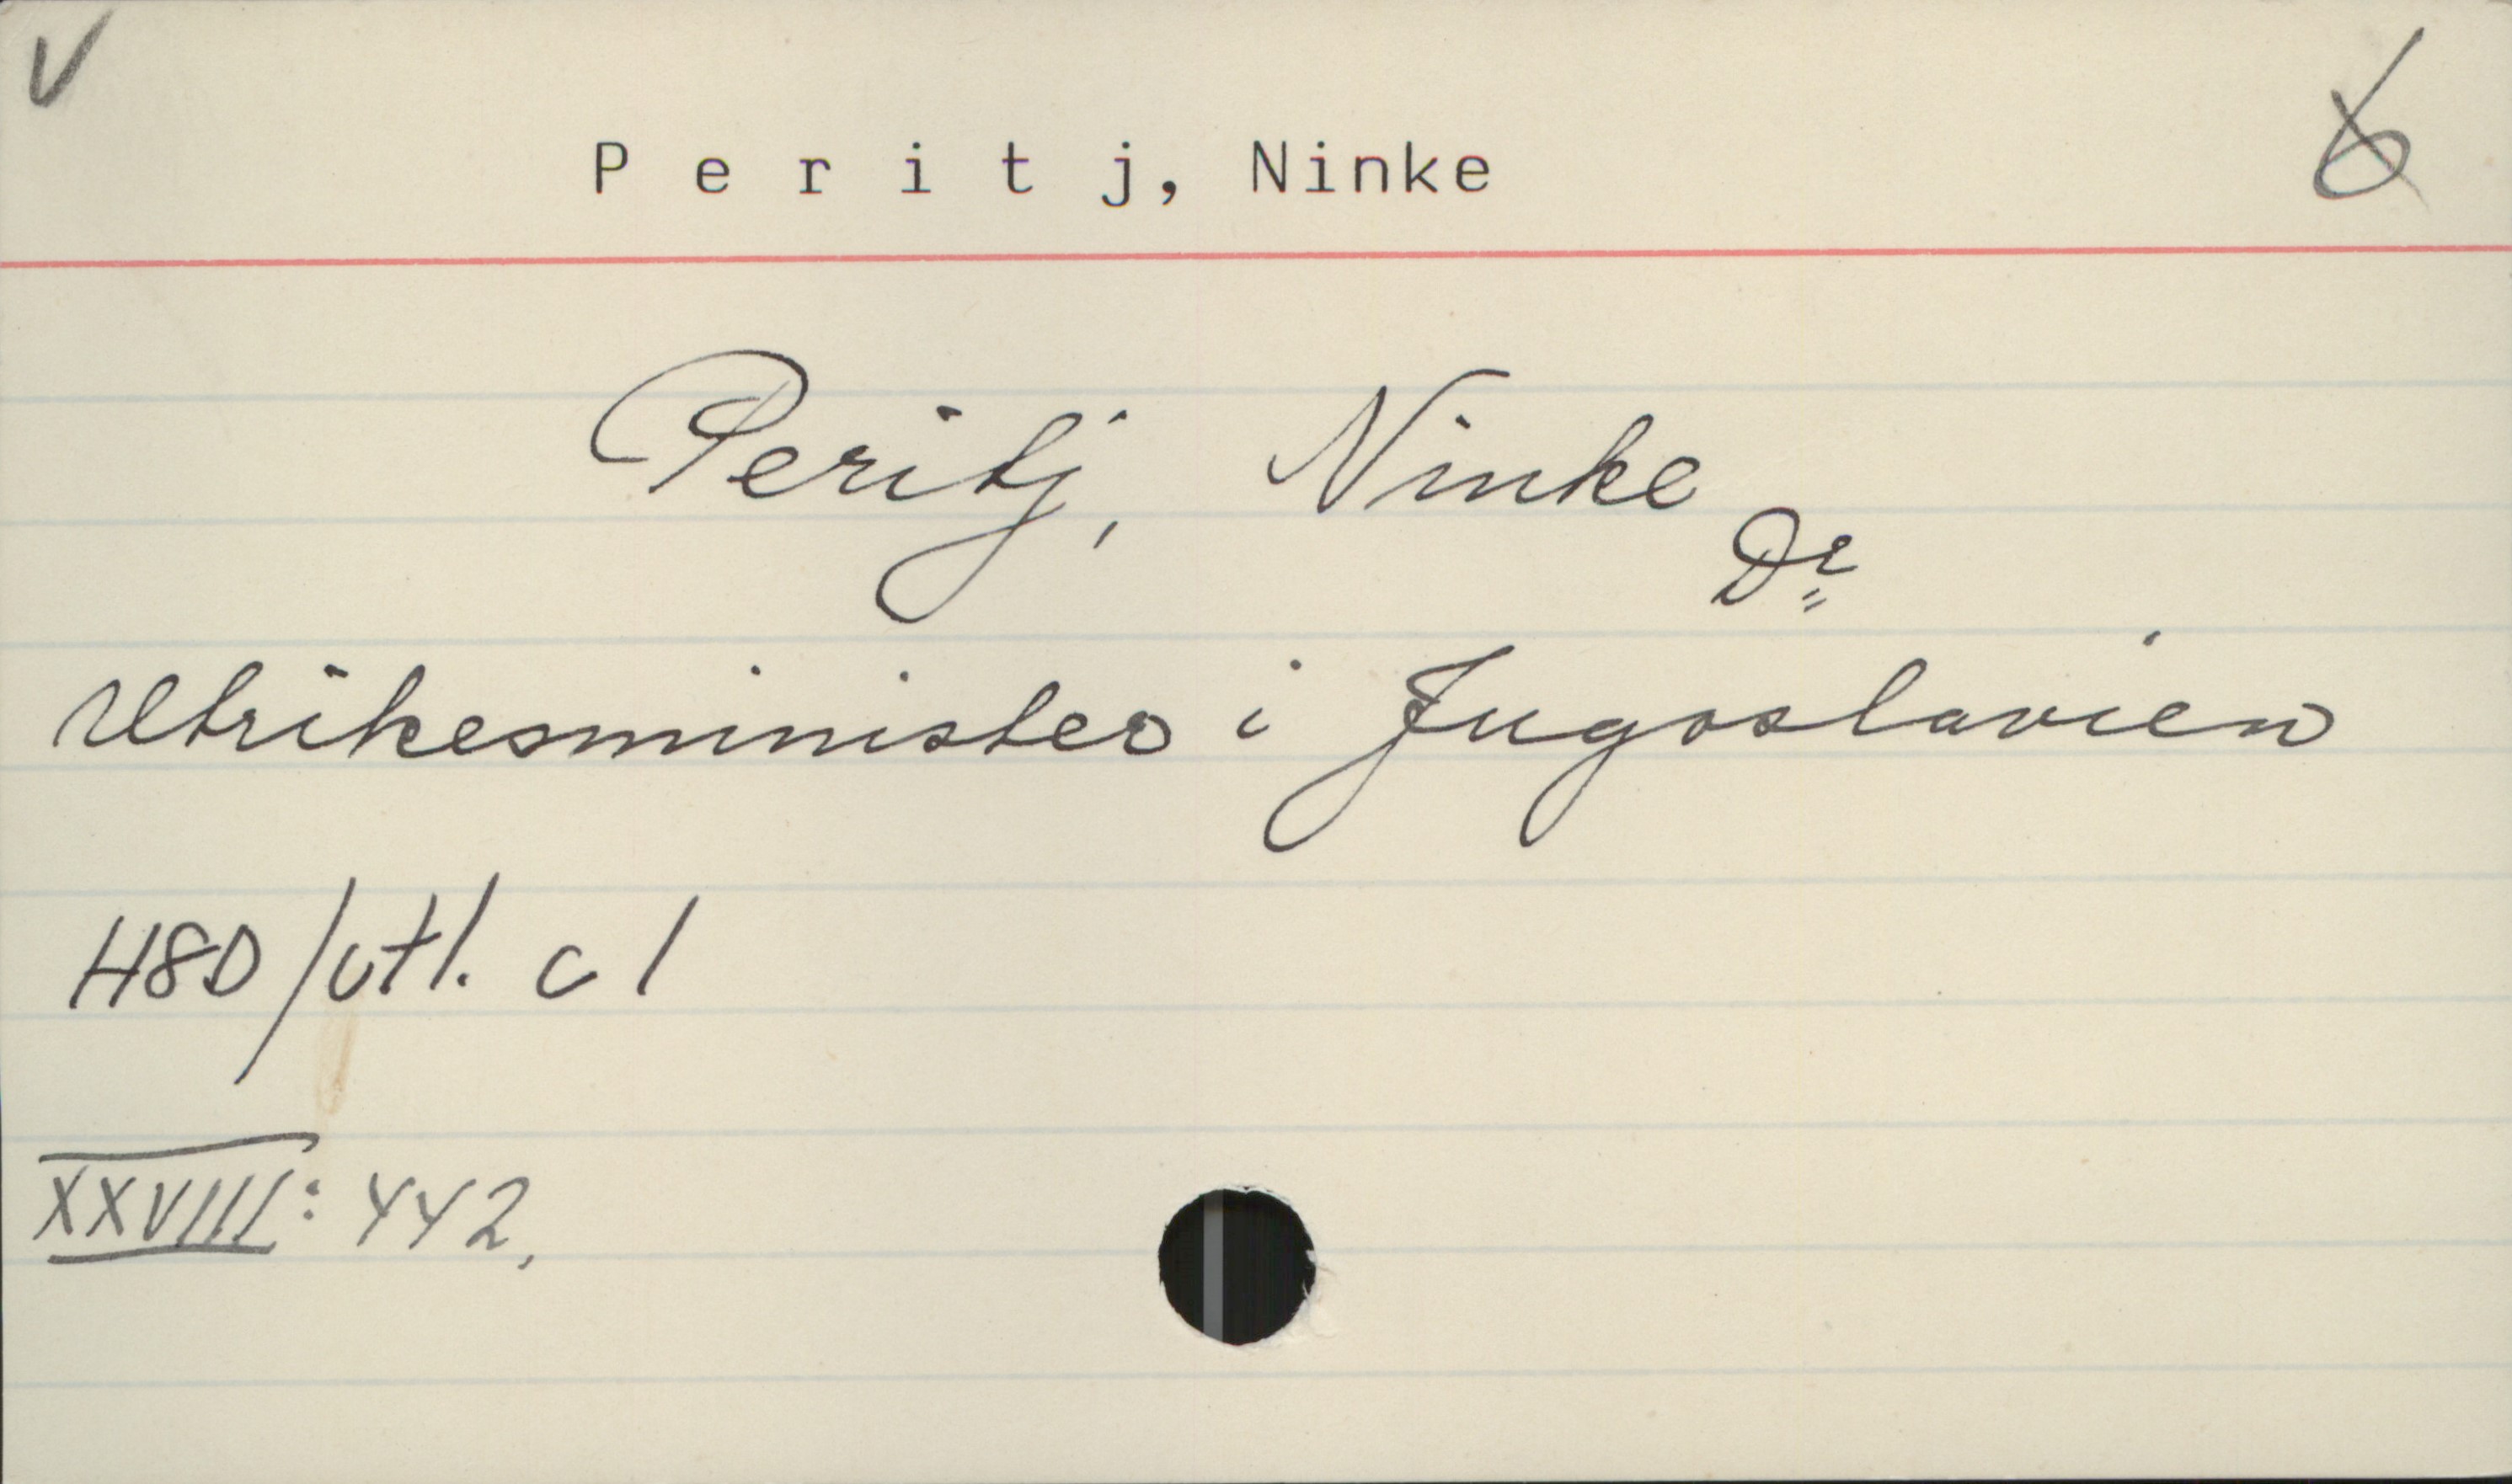 V
6
P e r i t j, Ninke
Peritj, Ninke
Dr
Utrikesminister i Jugoslavien
H8D/utl. c 1
XXVIII: 442.